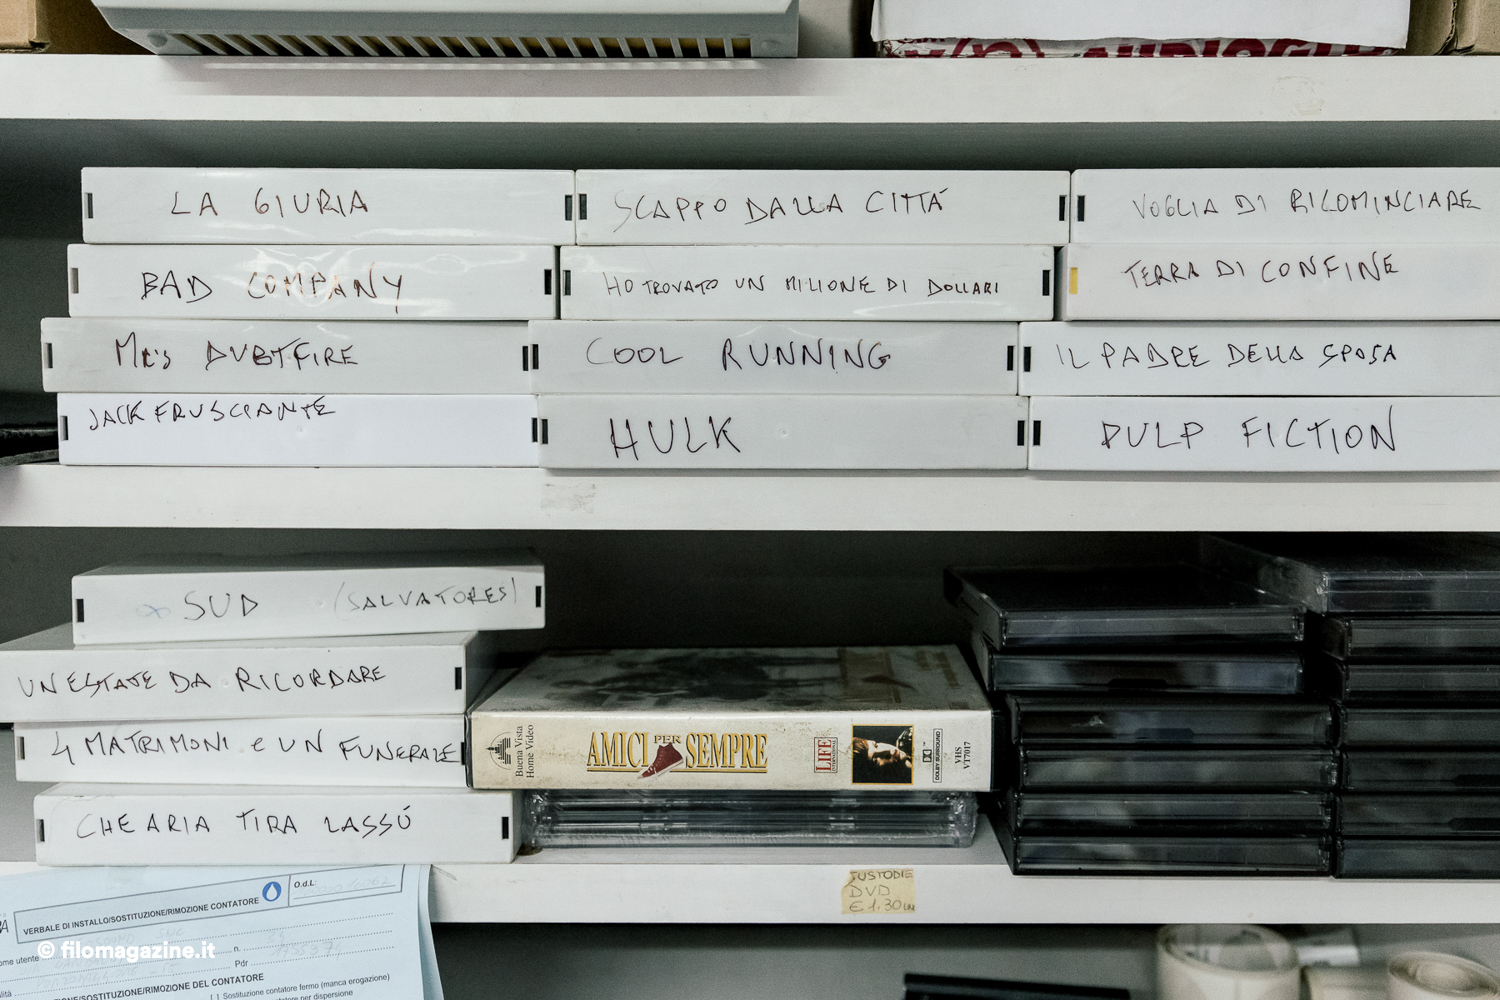 LA GIURIA
SCAPPO DALLA CITTÁ
VOGLIA DI RICOMINCIARE
BAD COMPANY
HO TROVATO UN MILIONE DI DOLLARI
TERRA DI CONFINE
MRS DUBTFIRE
COOL RUNNING
IL PADRE DELLA SPOSA
JACK FRUSCIANTE
HULK
PULP FICTION
SUD (SALVATORES)
UN ESTATE DA RICORDARE
4 MATRIMONI e UN FUNERALE
Buena Vista
Home Video
AMICI PER SEMPRE
LIFE
INTERNATIONAL
DOLBY SURROUND
VHS
VT7017
CHE ARIA TIRA LASSÚ
CUSTODIE
DVD
€ 1.30
O.d.L:
VERBALE DI INSTALLO/SOSTITUZIONE/RIMOZIONE CONTATORE
© filomagazine.it
ome utente
n.
Pdr
alità
NE/SOSTITUZIONE/RIMOZIONE DEL CONTATORE
[ ] Sostituzione contatore fermo (manca erogazione)
tatore per dispersione